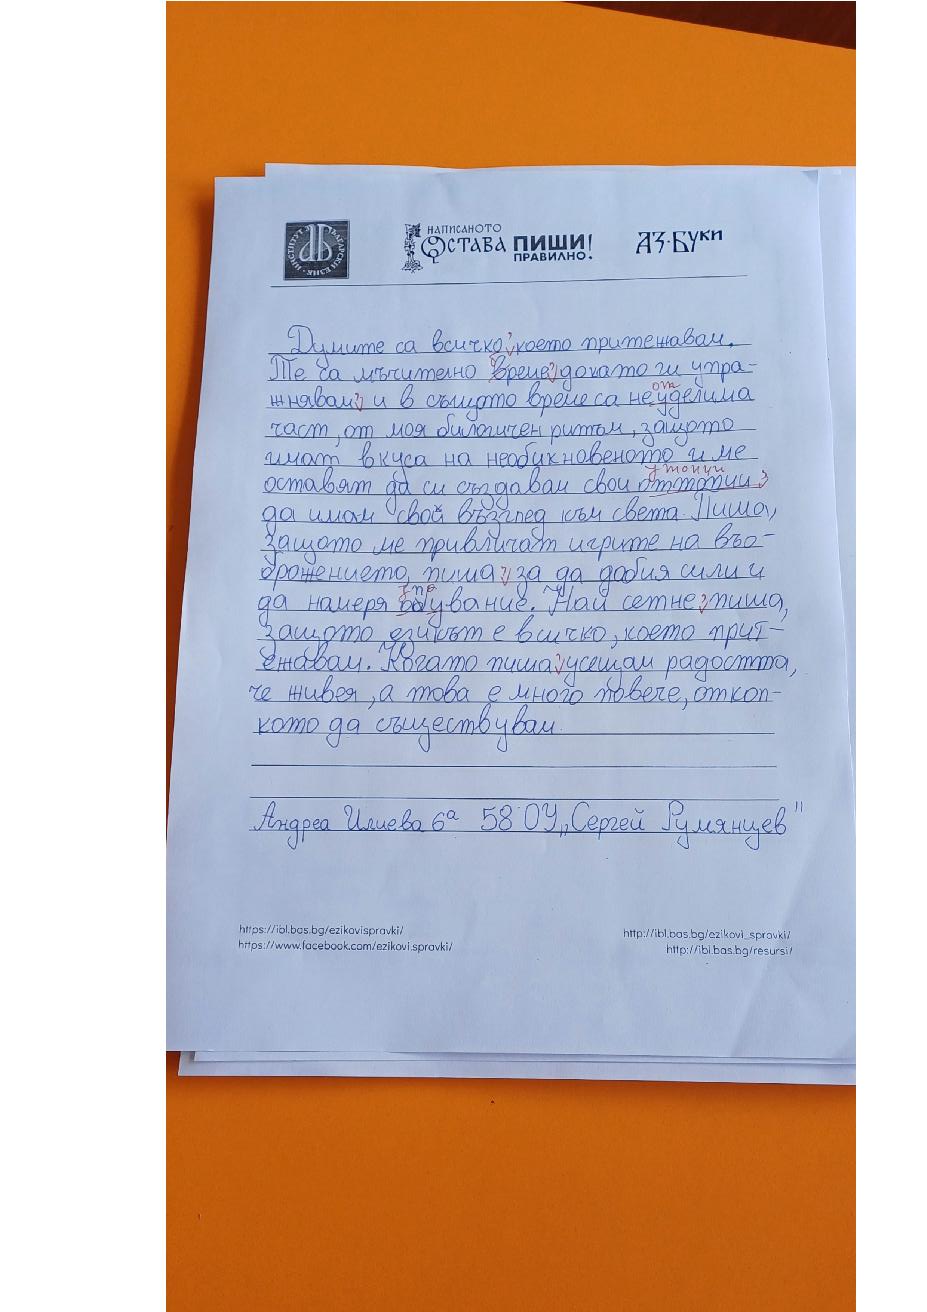 ИНСТИТУТ ЗА БЪЛГАРСКИ ЕЗИК
НАПИСАНОТО
ОСТАВА ПИШИ
ПРАВИЛНО!
АЗ·БУКИ
Думите са всичко, което притежавам.
Те са мъчително време, докато ги упра-
жнявам, и в същото време са неуделима
от
част, от моя билогичен ритъм, защото
имат вкуса на необикновеното и ме
утопии
оставят да си създавам свои оттопии,
да имам свой възглед към света. Пиша,
защото ме привличат игрите на въо-
бражението, пиша, за да добия сили и
да намеря обувание. Най сетне, пиша,
упо
защото езикът е всичко, което прит-
ежавам. Когато пиша, усещам радостта,
че живея, а това е много повече, откол-
кото да съществувам.
Андреа Илиева 6а 58 ОУ „Сергей Румянцев"
https://ibl.bas.bg/ezikovispravki/
https://www.facebook.com/ezikovi.spravki/
http://ibl.bas.bg/ezikovi_spravki/
http://ibl.bas.bg/resursi/